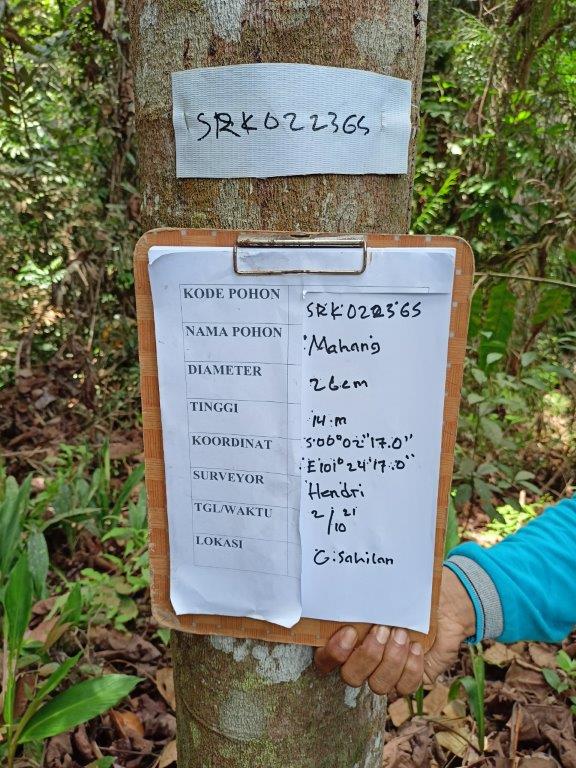 SRK022365
KODE POHON SRK022365
NAMA POHON Mahang
DIAMETER 26cm
TINGGI 14 m
KOORDINAT S:00°02'17.0"
E101°24'17.0"
SURVEYOR Hendri
TGL/WAKTU 2/10 21
LOKASI G. Sahilan